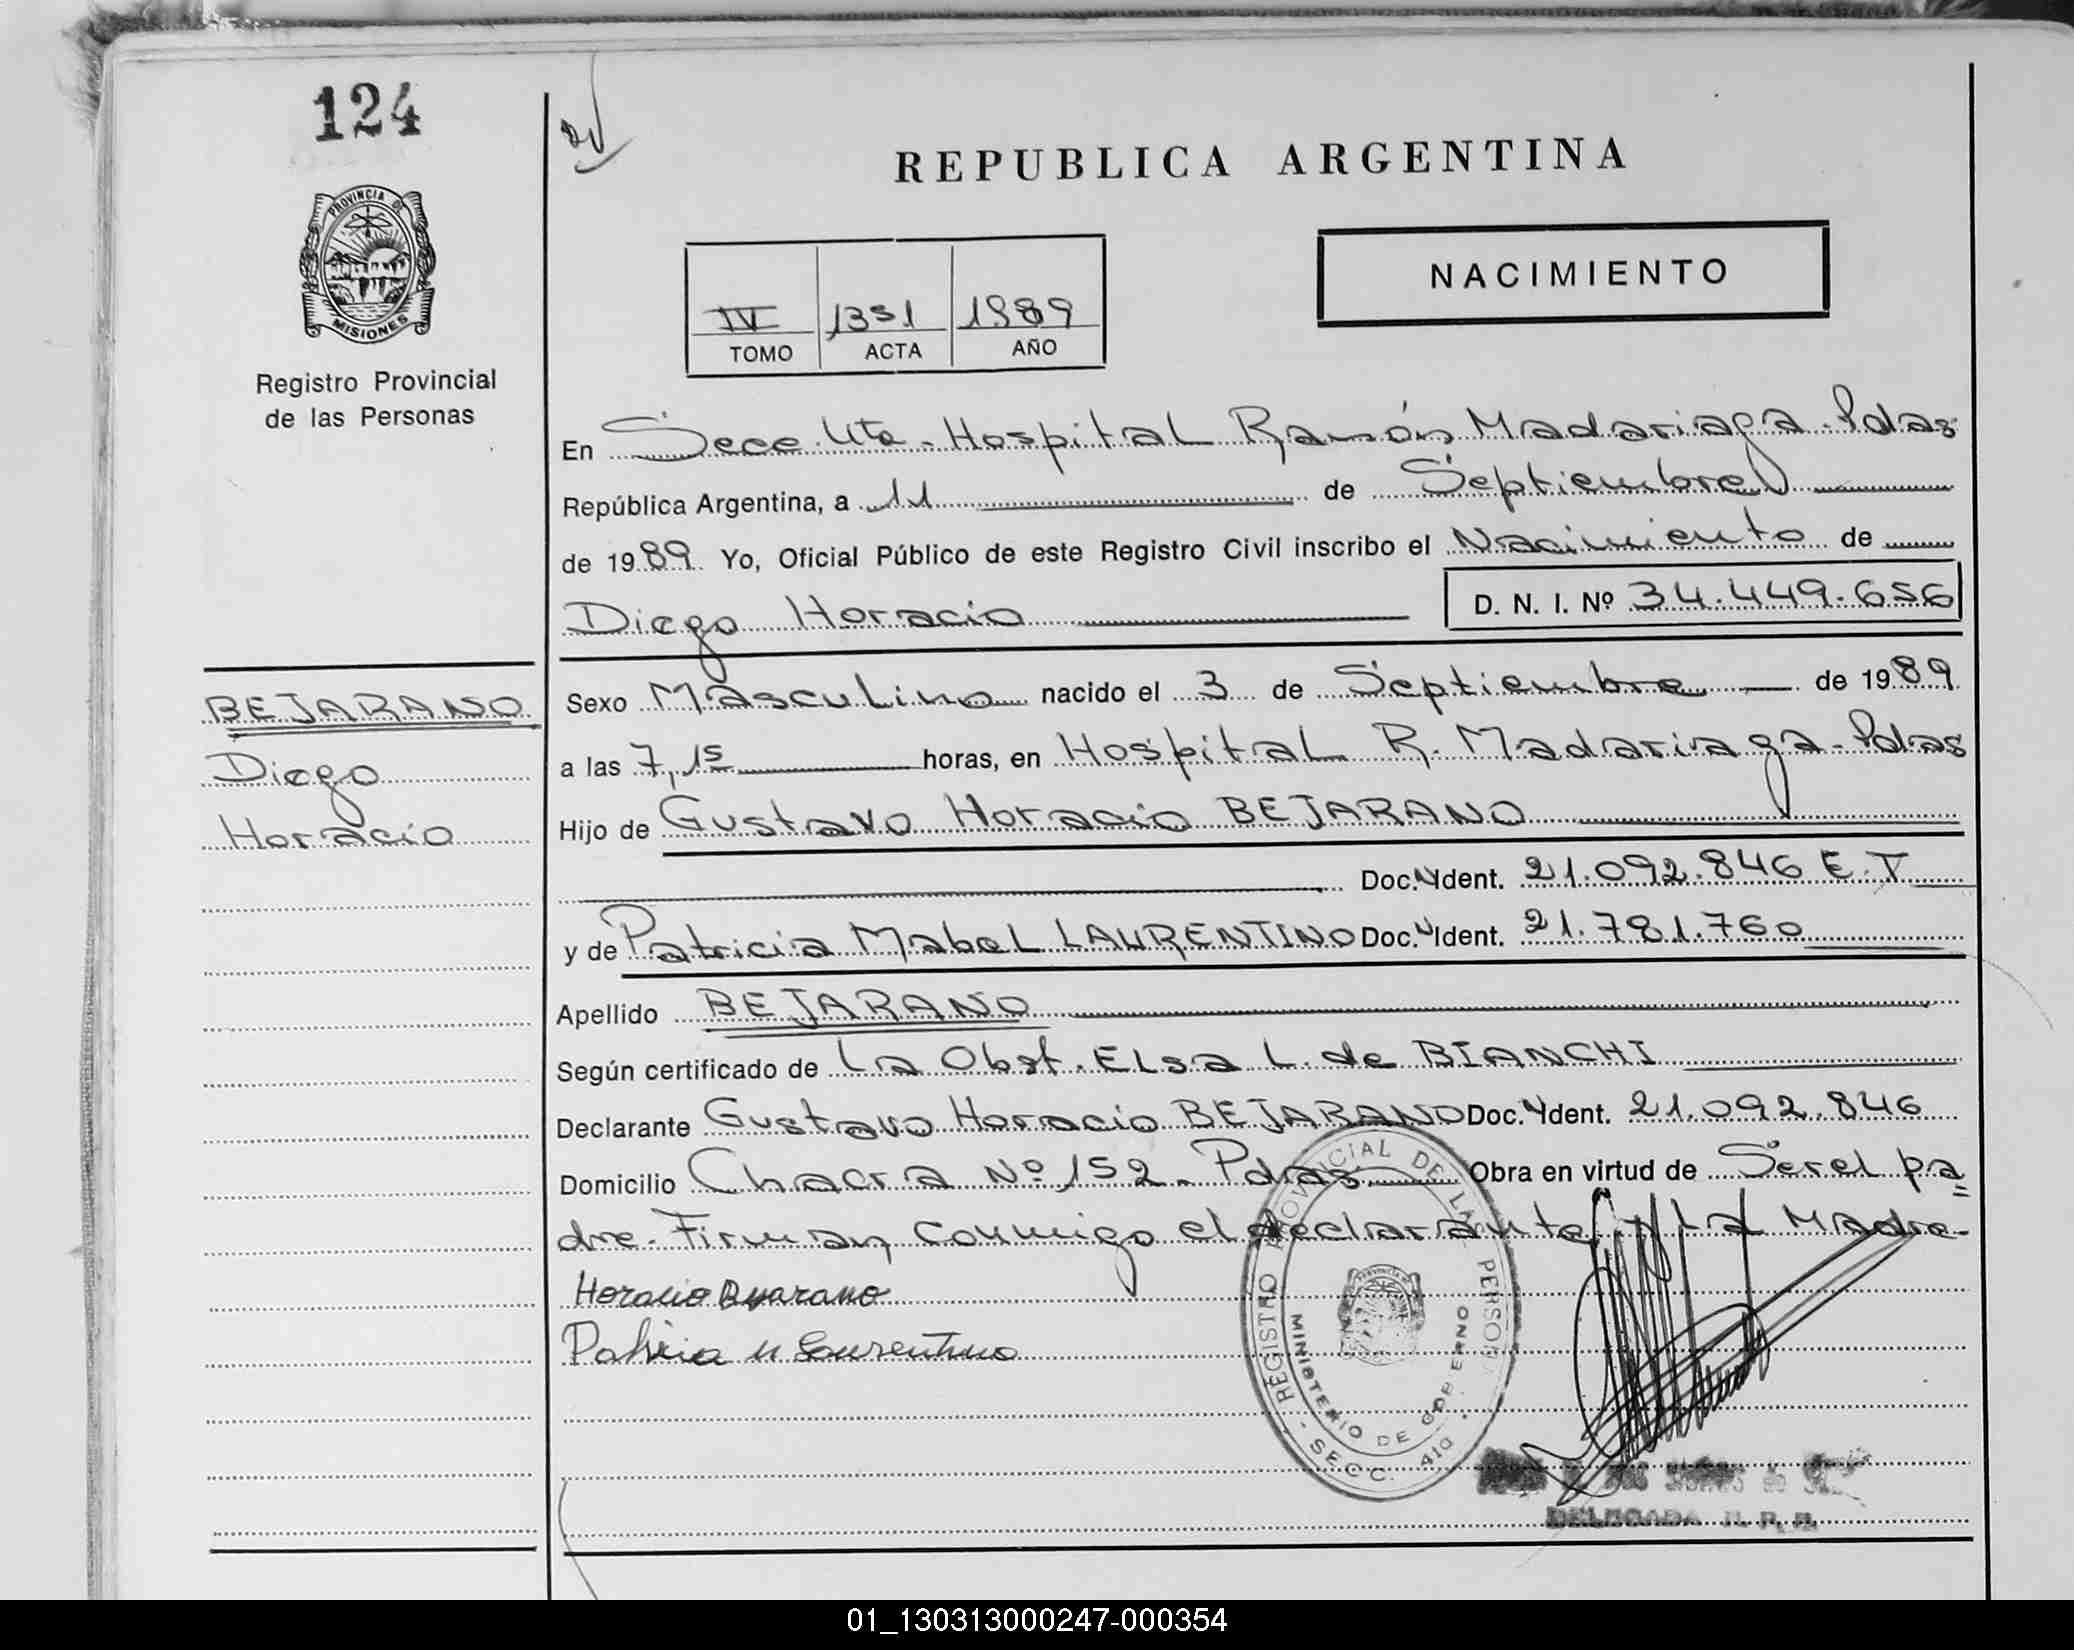 124
PROVINCIA DE
MISIONES
Registro Provincial
de las Personas
REPUBLICA ARGENTINA
NACIMIENTO
IV 1391 1989
TOMO ACTA AÑO
En Secc. 4ta. Hospital Ramón Madariaga. Pdas
República Argentina, a 11 de Septiembre
de 1989. Yo, Oficial Público de este Registro Civil inscribo el Nacimiento de
Diego Horacio D. N. I. Nº 34.449.656
BEJARANO
Diego
Horacio
Sexo Masculino nacido el 3 de Septiembre de 1989
a las 7,15 horas, en Hospital R. Madariaga. Pdas
Hijo de Gustavo Horacio BEJARANO
Doc. Ident. 21.092.846 E.T
y de Patricia Mabel LAURENTINO Doc. Ident. 21.781.760
Apellido BEJARANO
Según certificado de La Obst. Elsa L. de BIANCHI
Declarante Gustavo Horacio BEJARANO Doc. Ident. 21.092.846
Domicilio Chacra Nº 152. Pdas Obra en virtud de Ser el pa
dre. Firman conmigo el declarante y la Madre.
Horacio Bejarano
Patricia M Laurentino
REGISTRO PROVINCIAL DE LAS PERSONAS
MINISTERIO DE GOBIERNO
SECC. 4ta
DELEGADA R. P. P.
01_130313000247-000354